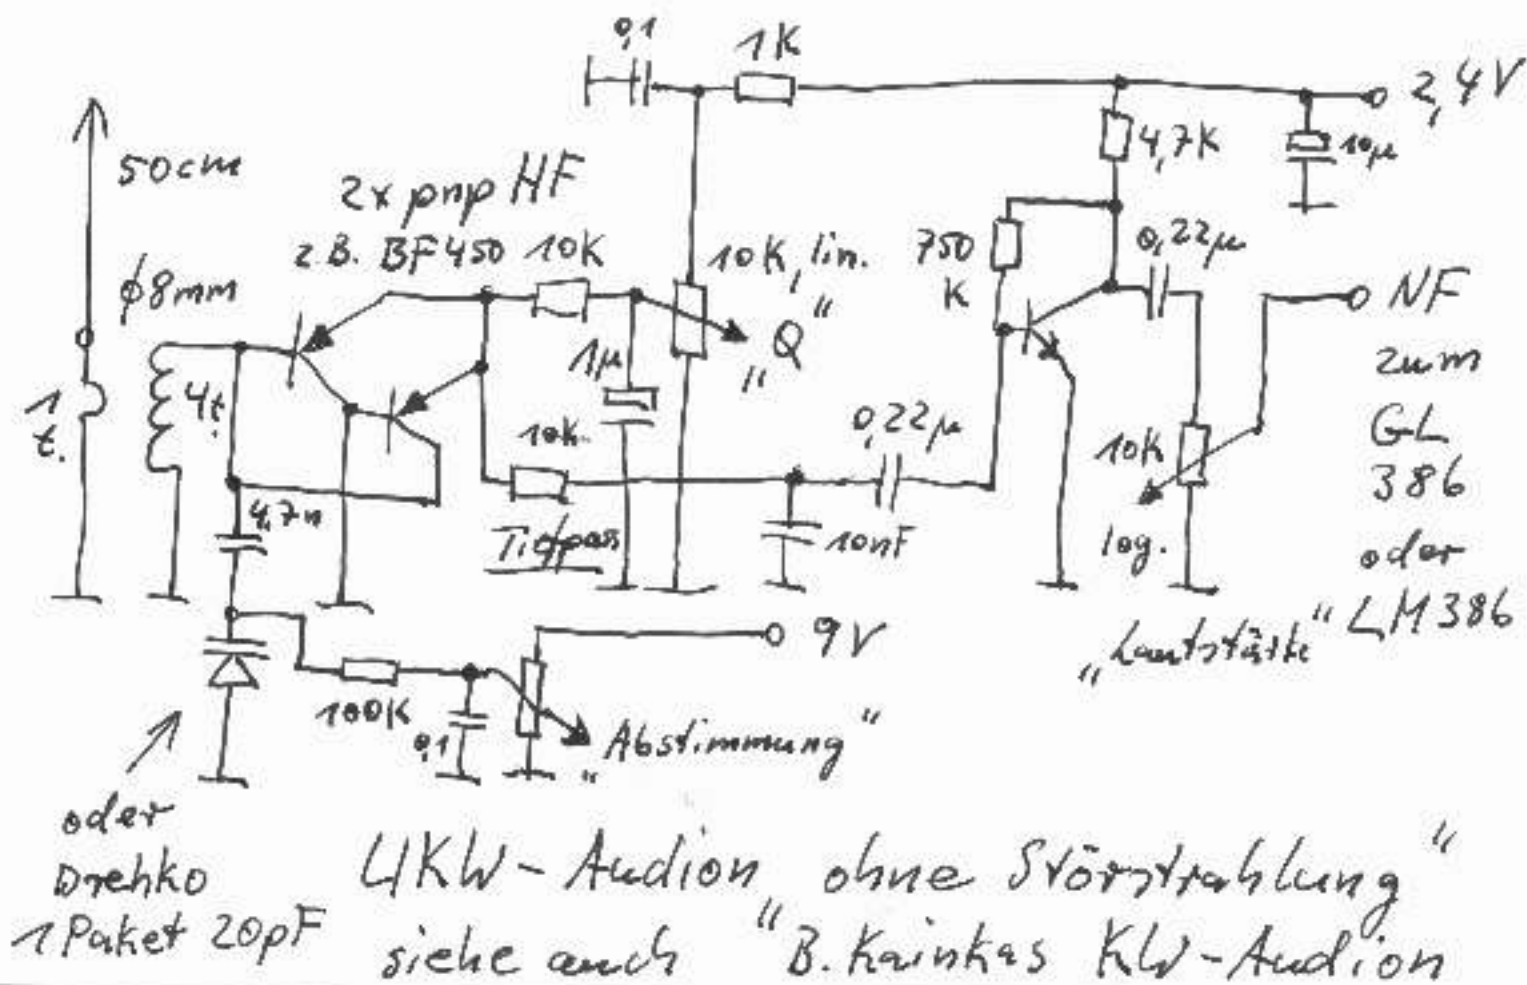 0,1
1K
2,4V
50cm
4,7K
10µ
2x pnp HF
z.B. BF450
10K
10K, lin.
750
K
0,22µ
ϕ8mm
NF
zum
GL
386
oder
LM386
„Q“
1µ
1
t.
4t.
10K.
0,22µ
10K
4,7n
Tiefpass
10nF
log.
„Lautstärke“
9V
100K
0,1
„Abstimmung“
oder
Drehko
1 Paket 20pF
UKW-Audion „ohne Störstrahlung“
siehe auch "B. Kainkas KW-Audion